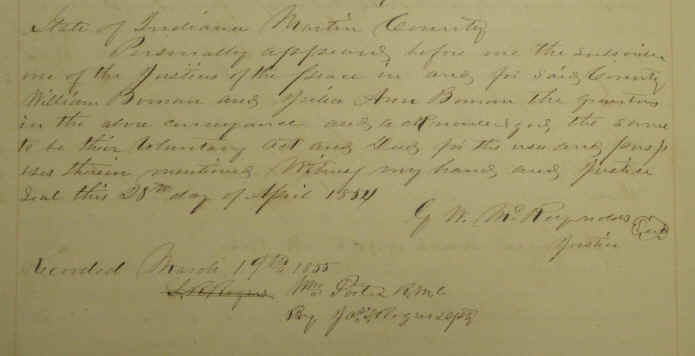 State of Indiana Martin County
Personally appeared before me the
one of the Justices of the Peace in and for said County
William Boman and Ann Boman the grantors
in the above conveyance and acknowledged the same
to be their Voluntary Act and Deed for the uses and purpo
ses therein mentioned Witness my hand and Justice
Seal this 28th day of April 1854
G W. McReynolds Seal
Justice
Recorded March 19th 1855
Wm Porter R.M.C.
By Rogers